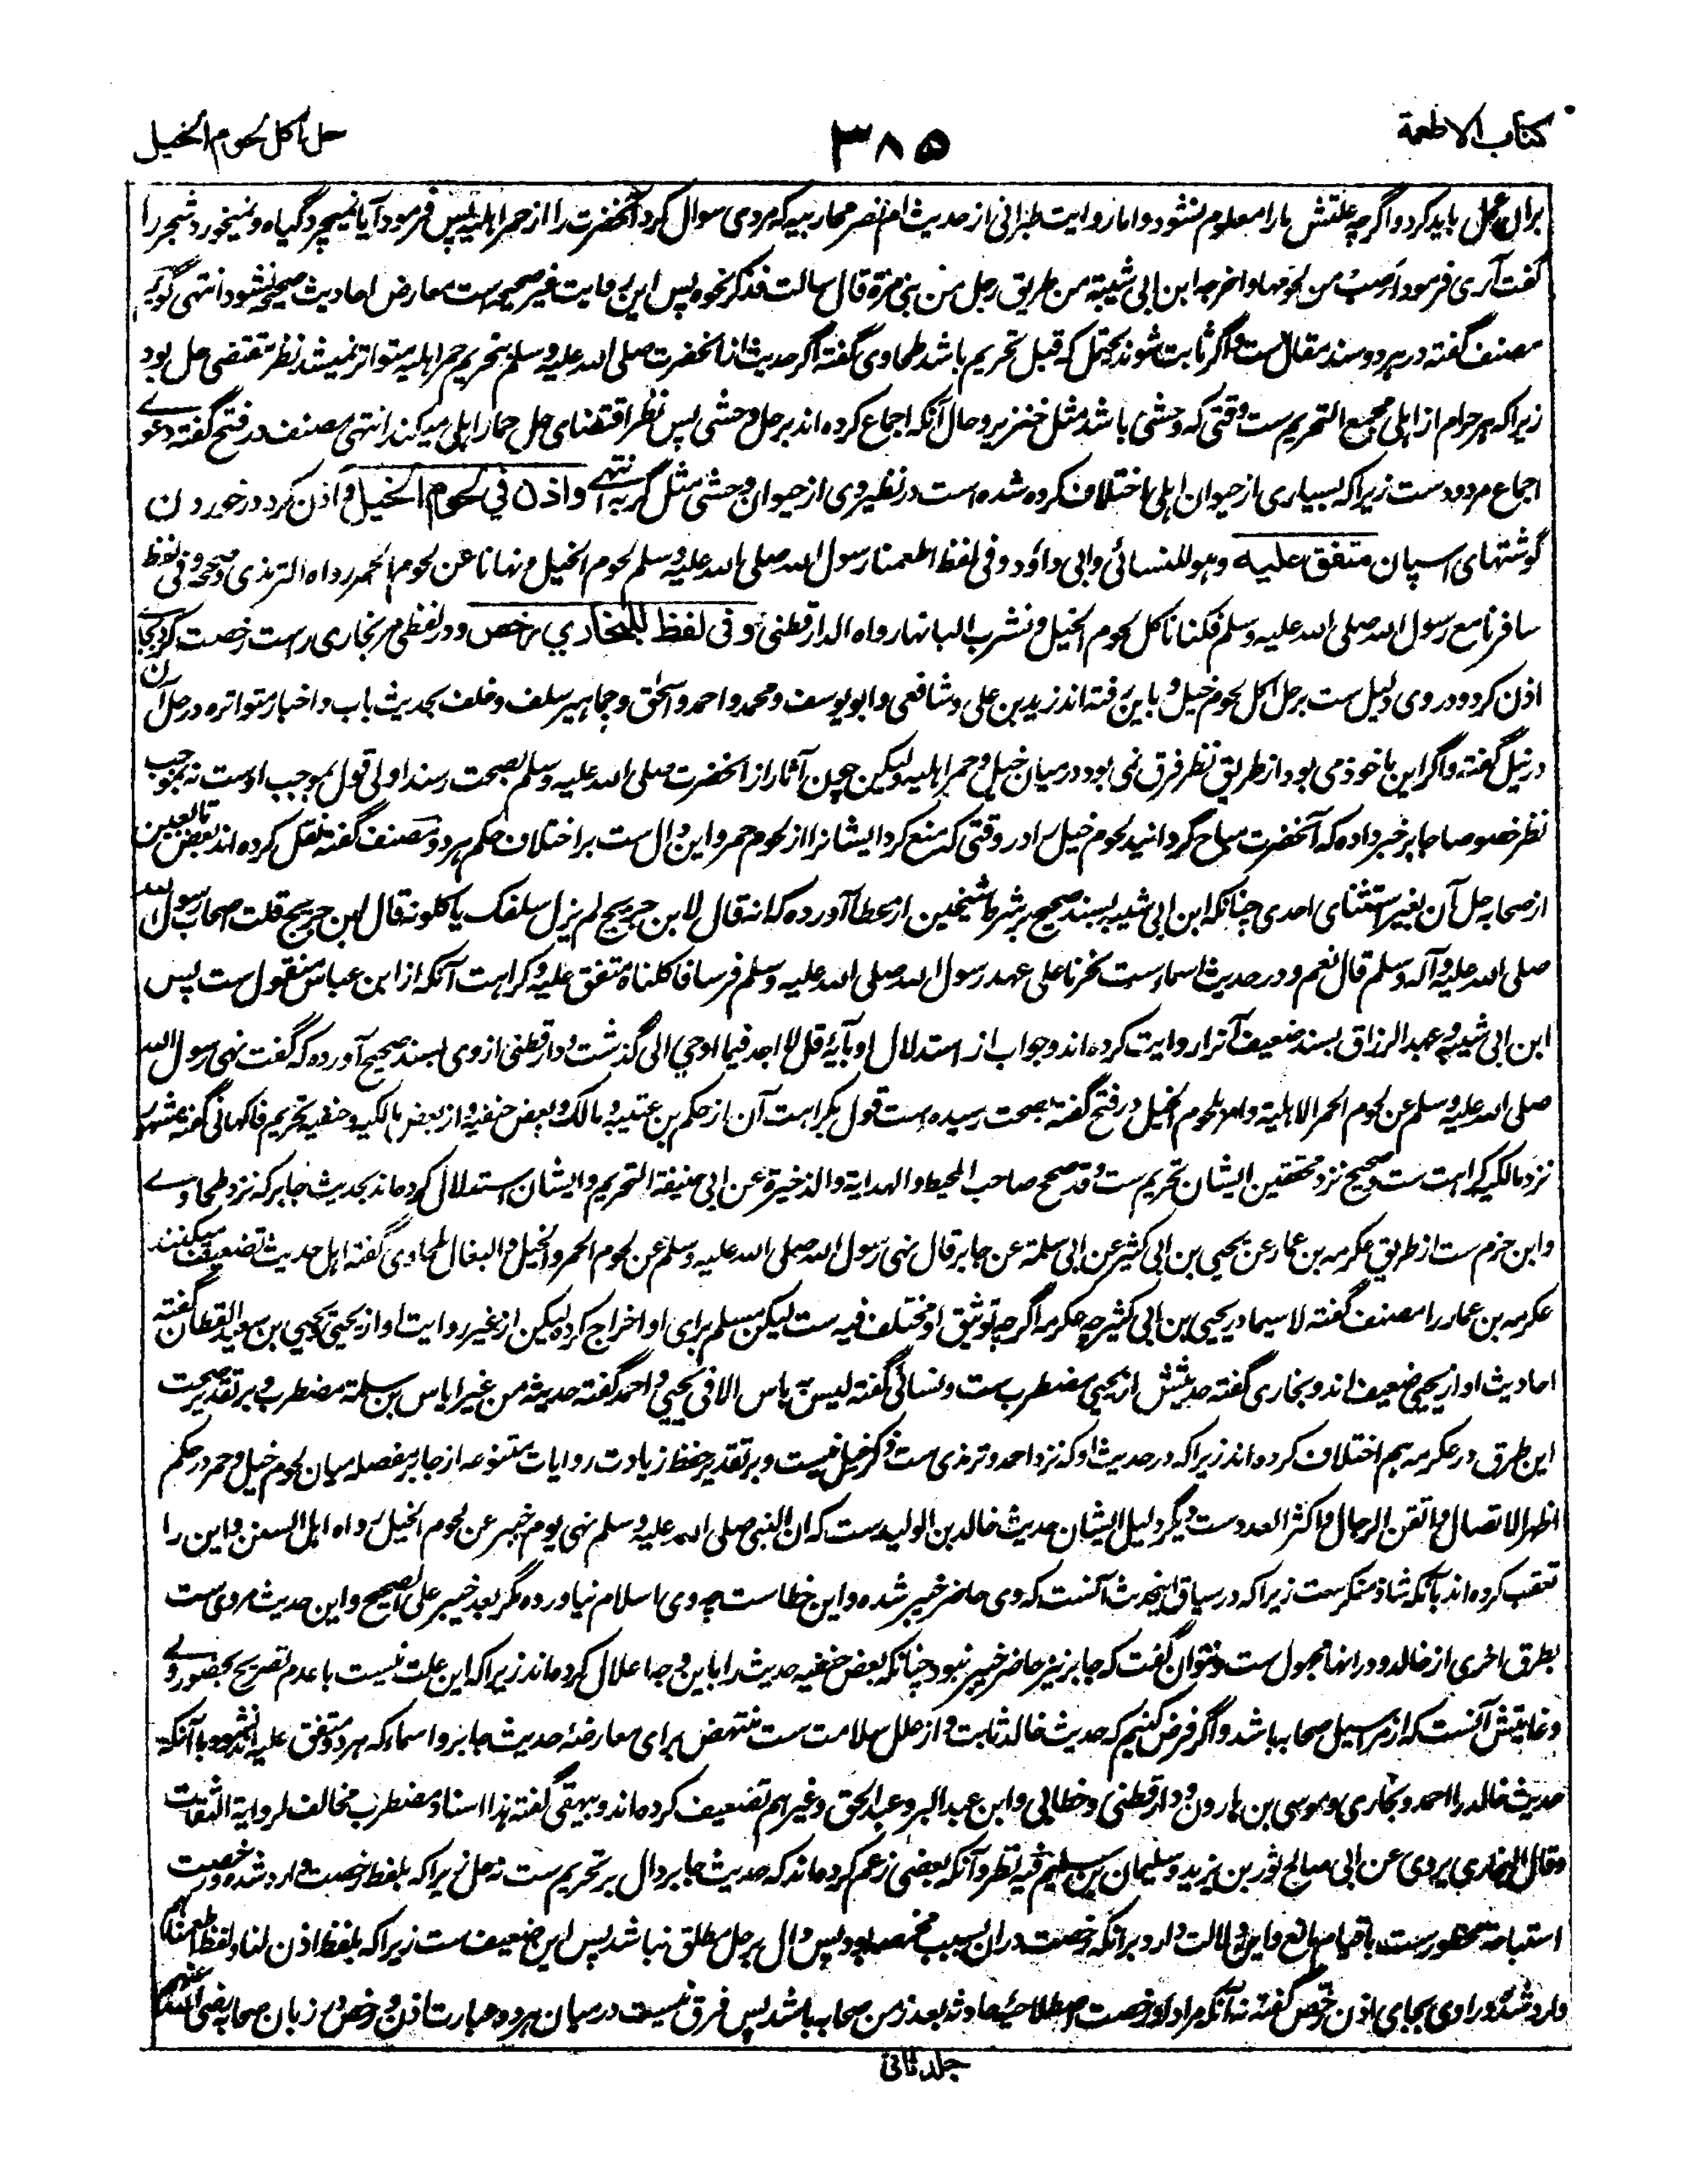 كتاب الاطعمة
۳۸۵
حل اكل لحوم الخيل
بران عمل باید کرد و اگرچه علتش مارا معلوم نشود و اما روایت طبرانی از حدیث ام نصر محاربیه که مردی سوال کرد آنحضرت را از حمر اهلیه پس فرمود آیا نمیچرد گیاه و نمیخورد شجر را
گفت آری فرمود اَصِبْ من لحومها و اخرجه ابن ابی شیبة من طریق رجل من بنی مرة قال سالت فذکر نحوه پس این روایت غیر صحیحه است معارض احادیث صحیحه نشود انتهی گویم
مصنف گفته در هر دو سند مقال ست و اگر ثابت شوند محتمل که قبل تحریم باشد طحاوی گفته اگر حدیث از آنحضرت صلی الله علیه وسلم بتحریم حمر اهلیه متواتر نمیشد نظر مقتضی حل بود
زیرا که هر حرام از اهلی مجمع التحریم ست وقتی که وحشی باشد مثل خنزیر و حال آنکه اجماع کرده اند بر حل وحشی پس نظر اقتضای حل حمار اهلی میکند انتهی مصنف در فتح گفته دعوے
اجماع مردودست زیرا که بسیاری از حیوان اهلی اختلاف کرده شده است در نظیر وی از حیوان وحشی مثل گربه انتهے واذن في لحوم الخيل و اذن کرد در خوردن
گوشتهای اسپان متفق عليه وهو للنسائی وابی داؤد وفی لفظ اطعمنا رسول الله صلی الله علیه وسلم لحوم الخیل ونهانا عن لحوم الحمر رواه الترمذی وصححه وفی لفظ
سافرنا مع رسول الله صلی الله علیه وسلم فکنا ناکل لحوم الخیل ونشرب البانها رواه الدارقطنی وفی لفظ للبخاري رخص و در لفظی مر بخاری راست رخصت کرد بجاے
اذن کرد و دروی دلیل ست بر حل اکل لحوم خیل و باین رفته اند زید بن علی وشافعی وابو یوسف ومحمد واحمد واسحٰق وجماهیر سلف وخلف بحدیث باب و اخبار متواتره در حل آن
در نیل گفته و اگر این ماخوذ می بود از طریق نظر فرق نمی بود درمیان خیل و حمر اهلیه ولیکن چون آثار از آنحضرت صلی الله علیه وسلم بصحت رسند اولی قول بموجب اوست نه بموجب
نظر خصوصا جابر خبر داده که آنحضرت مباح گردانید لحوم خیل را در وقتی که منع کرد ایشانرا از لحوم حمر و این دال ست بر اختلاف حکم هر دو مصنف گفته نقل کرده اند بعض تابعین
از صحابه حل آن بغیر استثنای احدی چنانکه ابن ابی شیبه بسند صحیح بر شرط شیخین از عطا آورده که انه قال لابن جریج لم یزل سلفک یاکلونه قال ابن جریج قلت اصحاب رسول الله
صلی الله علیه وآله وسلم قال نعم و در حدیث اسماست نحرنا علی عهد رسول الله صلی الله علیه وسلم فرسا فاکلناه متفق علیه و کراهت آنکه از ابن عباس منقول ست پس
ابن ابی شیبه وعبد الرزاق بسند ضعیف آنرا روایت کرده اند و جواب از استدلال او بآیۀ قل لا اجد فیما اوحي الی گذشت و دارقطنی از وی بسند صحیح آورده که گفت نهی رسول الله
صلی الله علیه وسلم عن لحوم الحمر الاهلیة وامر بلحوم الخیل در فتح گفته بصحت رسیده است قول بکراهت آن از حکم بن عتیبه و مالک و بعض حنفیه و از بعض مالکیه و حنفیه تحریم فاکهانی گفته مشهور
نزد مالکیه کراهت ست و صحیح نزد محققین ایشان تحریم ست وقد صحح صاحب المحیط والهدایة والذخیرة عن ابی حنیفة التحریم و ایشان استدلال کرده اند بحدیث جابر که نزد طحاوے
وابن حزم ست از طریق عکرمه بن عمار عن یحیی بن ابی کثیر عن ابی سلمة عن جابر قال نهی رسول الله صلی الله علیه وسلم عن لحوم الحمر والخیل والبغال طحاوی گفته اهل حدیث تضعیف میکنند
عکرمه بن عمار را مصنف گفته لاسیما در یحیی بن ابی کثیر چه عکرمه اگرچه توثیق او مختلف فیه ست لیکن مسلم برای او اخراج کرده لیکن از غیر روایت او از یحیی و یحیی بن سعید القطان گفته
احادیث او از یحیی ضعیف اند و بخاری گفته حدیثش از یحیی مضطرب ست و نسائی گفته لیس به باس الا فی یحیی و احمد گفته حدیثه من غیر ایاس بن سلمة مضطرب و بر تقدیر صحت
این طرق در عکرمه هم اختلاف کرده اند زیرا که در حدیث او که نزد احمد و ترمذی ست ذکر خیل نیست و بر تقدیر حفظ زیادت روایات متنوعه از جابر مفصله میان لحوم خیل و حمر در حکم
اظهر الاتصال واتقن الرجال واکثر العددست و دیگر دلیل ایشان حدیث خالد بن الولیدست که ان النبی صلی الله علیه وسلم نهی یوم خیبر عن لحوم الخیل رواه اهل السنن و این را
تعقب کرده اند بآنکه شاذ منکرست زیرا که در سیاق اینحدیث آنست که وی حاضر خیبر شده و این خطاست چه وی اسلام نیاورده مگر بعد خیبر علی الصحیح و این حدیث مروی ست
بطرق اخری از خالد و در انها مجهول ست و نتوان گفت که جابر نیز حاضر خیبر نبود چنانکه بعض حنفیه حدیث را باین وجه اعلال کرده اند زیرا که این علت نیست با عدم تصریح بحضور وے
و غایتش آنست که از مراسیل صحابه باشد و اگر فرض کنیم که حدیث خالد ثابت و از علل سلامت ست منتهض برای معارضۀ حدیث جابر و اسماء که هر دو متفق علیه اند نشود با آنکه
حدیث خالد را احمد و بخاری و موسی بن هارون و دارقطنی و خطابی وابن عبد البر وعبد الحق وغیرهم تضعیف کرده اند و بیهقی گفته هذا اسناد مضطرب مخالف لروایة الثقات
وقال البخاري یروی عن ابی صالح ثور بن یزید وسلیمان بن سلیم فیه نظر و آنکه بعضی زعم کرده اند که حدیث جابر دال بر تحریم ست نه حل زیرا که بلفظ رخصت وارد شده و رخصت
استباحة محظورست با قیام مانع و این دلالت دارد برانکه رخصت دران بسبب مخمصه بود پس دال بر حل مطلق نباشد پس این ضعیف ست زیرا که بلفظ اذن لنا و لفظ اطعمنا هم
وارد شده و راوی بجای اذن رخص گفته نه آنکه مراد او رخصت اصطلاحیۀ حادثه بعد زمن صحابه باشد پس فرق نیست درمیان هر دو عبارت اذن و رخص در زبان صحابه رضی الله عنهم
جلد ثانی